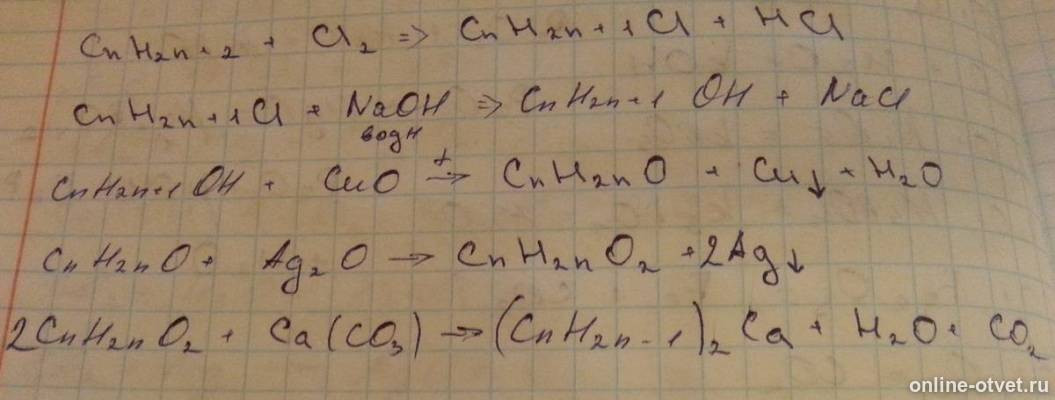 CnH2n+2 + Cl2 => CnH2n+1Cl + HCl
CnH2n+1Cl + NaOH => CnH2n+1 OH + NaCl
водн
CnH2n+1OH + CuO t-> CnH2nO + Cu↓ + H2O
CnH2nO + Ag2O -> CnH2nO2 + 2Ag↓
2CnH2nO2 + Ca(CO3) -> (CnH2n-1)2Ca + H2O + CO2
online-otvet.ru